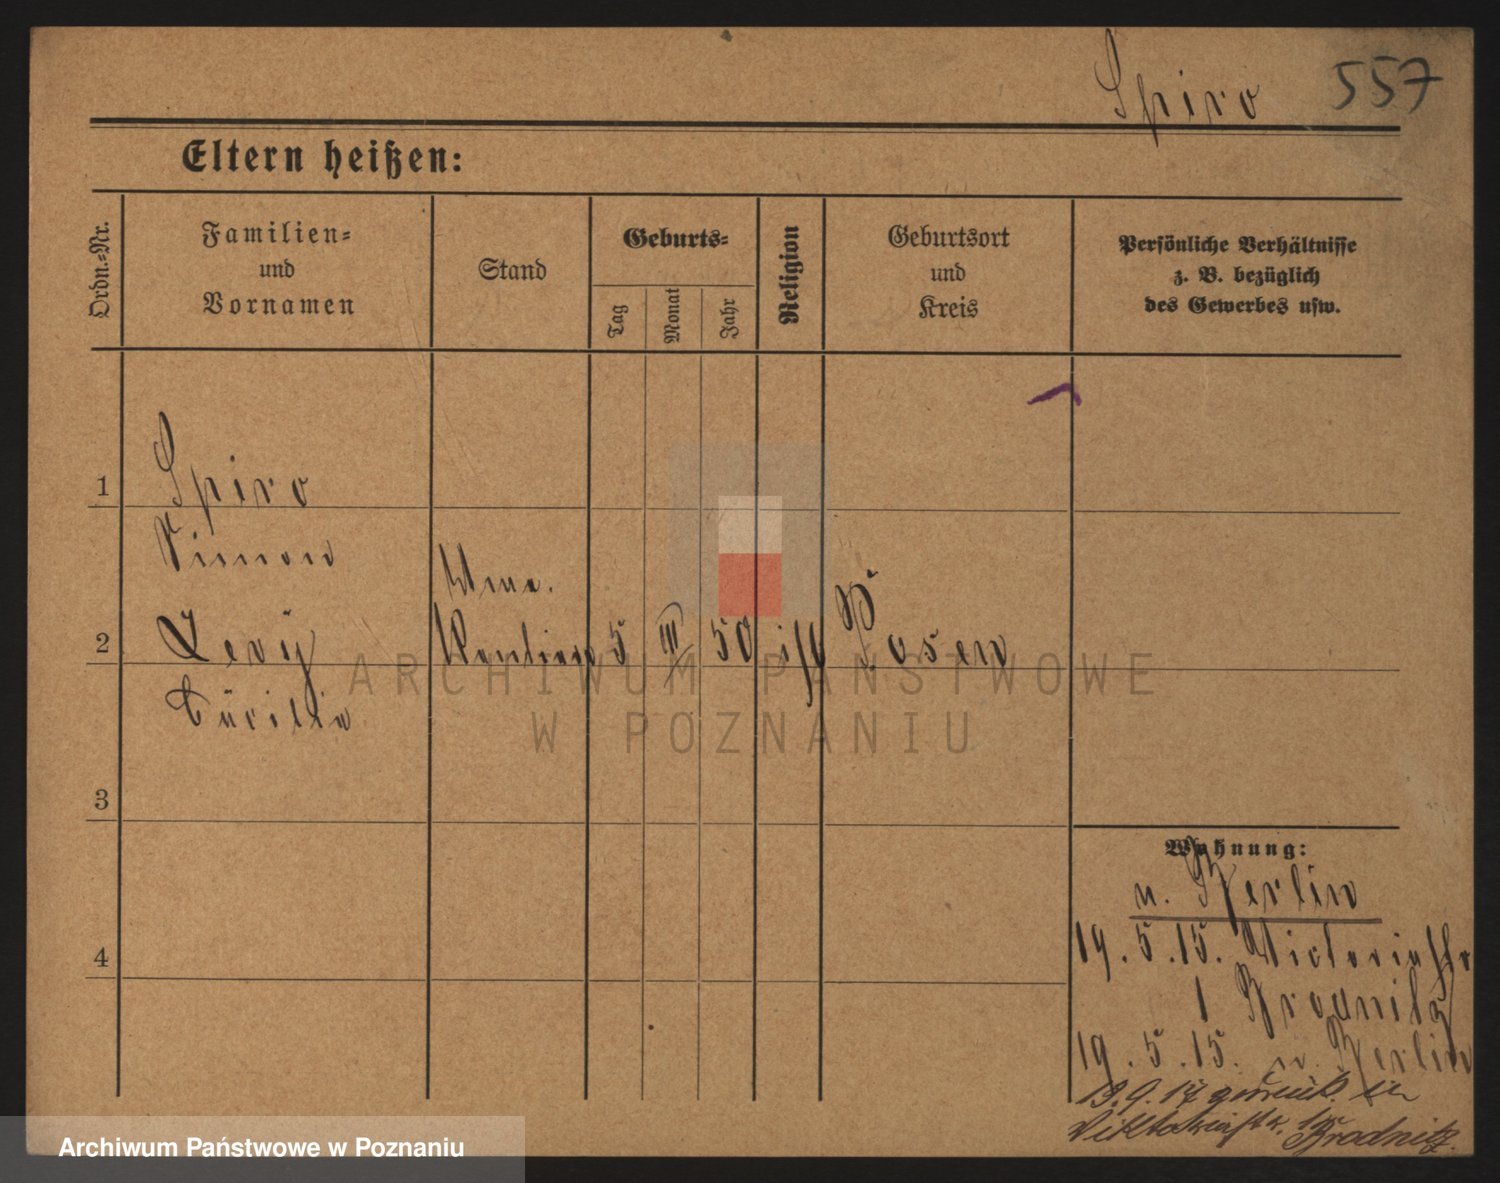 Spiro 557
Eltern heißen:
Ordn.-Nr.
Familien-
und
Vornamen
Stand
Geburts-
Tag
Monat
Jahr
Religion
Geburtsort
und
Kreis
Persönliche Verhältnisse
z. B. bezüglich
des Gewerbes usw.
1
Spiro
Simon
2
Levÿ
Cäcilie
Wwe.
5 III 50 isr Posen
ARCHIWUM PAŃSTWOWE
W POZNANIU
3
4
Wohnung:
n. Berlin
19.5.15. Victoriastr
1 Brodnitz
19.5.15. n. Berlin
13.9.17 zurück. in
Viktoriastr. 1 Brodnitz.
Archiwum Państwowe w Poznaniu